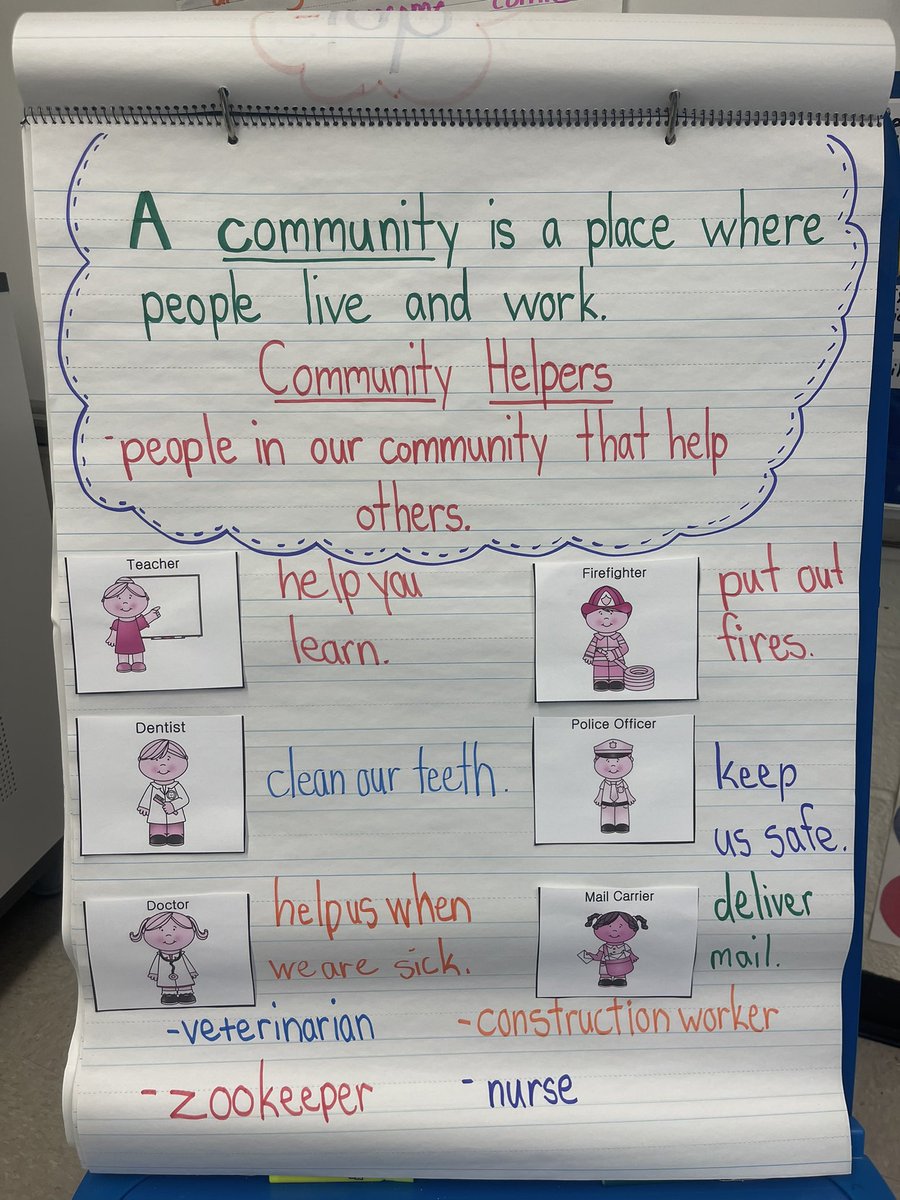 A community is a place where
people live and work.
Community Helpers
-people in our community that help
others.
Teacher
help you
learn.
Firefighter
put out
fires.
Dentist
clean our teeth.
Police Officer
keep
us safe.
Doctor
help us when
we are sick.
Mail Carrier
deliver
mail.
-veterinarian
-construction worker
-zookeeper
-nurse